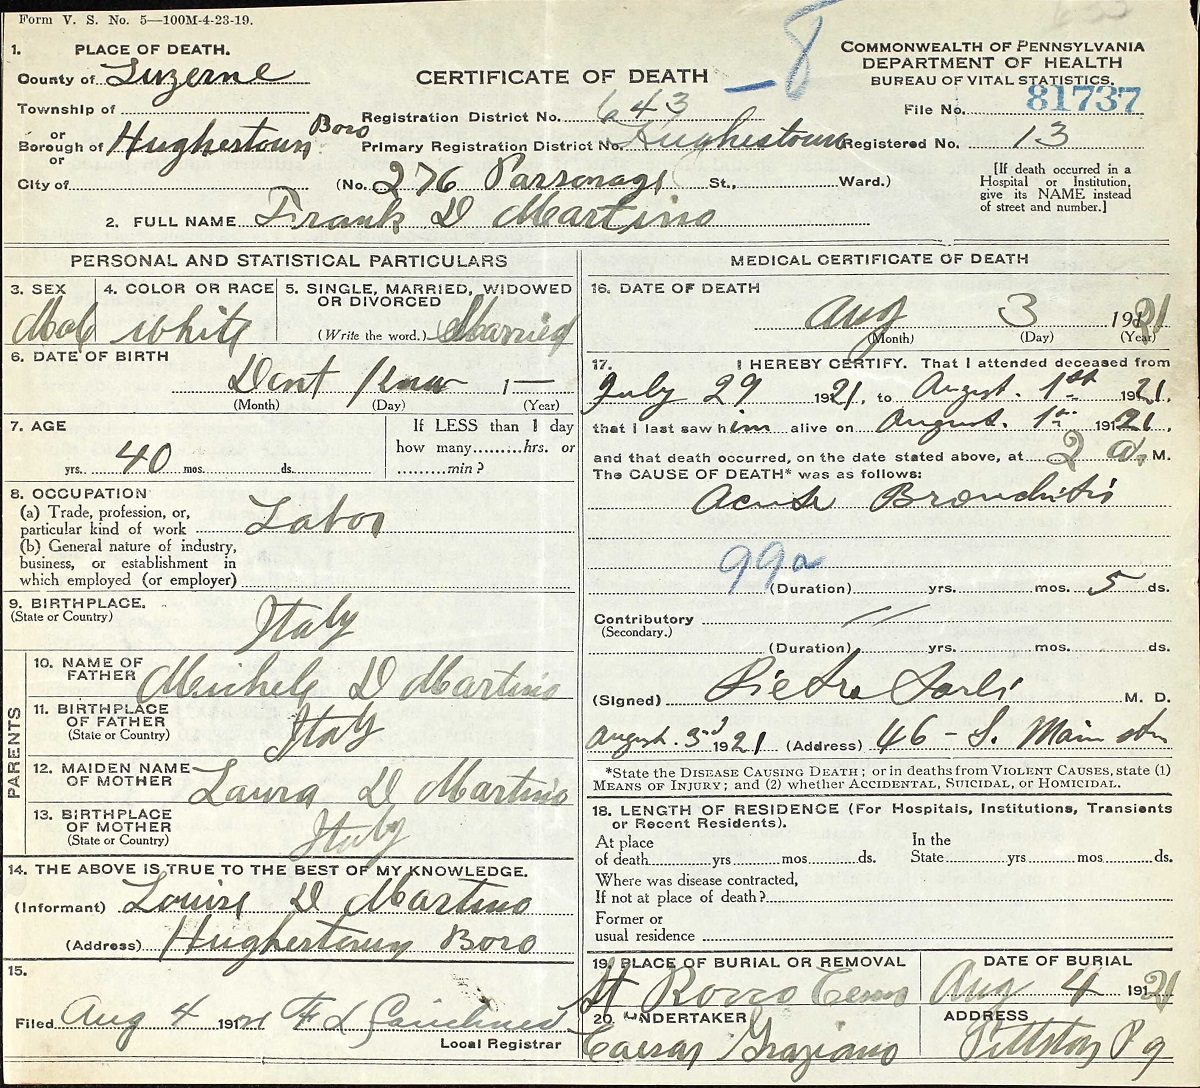 Form V. S. No. 5—100M-4-23-19.
1. PLACE OF DEATH.
County of Luzerne
Township of
or
Borough of Hughestown Boro
or
City of
CERTIFICATE OF DEATH
-8
Registration District No. 643
Primary Registration District No. Hughestown
(No. 276 Parsonage St., Ward.)
COMMONWEALTH OF PENNSYLVANIA
DEPARTMENT OF HEALTH
BUREAU OF VITAL STATISTICS.
File No. 81737
Registered No. 13
[If death occurred in a
Hospital or Institution,
give its NAME instead
of street and number.]
2. FULL NAME Frank D Martino
PERSONAL AND STATISTICAL PARTICULARS
3. SEX
Male
4. COLOR OR RACE
white
5. SINGLE, MARRIED, WIDOWED
OR DIVORCED
(Write the word.) Married
6. DATE OF BIRTH
Dont know 1—
(Month) (Day) (Year)
7. AGE
40
yrs. mos. ds.
If LESS than 1 day
how many hrs. or
min ?
8. OCCUPATION
(a) Trade, profession, or,
particular kind of work Labor
(b) General nature of industry,
business, or establishment in
which employed (or employer)
9. BIRTHPLACE.
(State or Country)
Italy
PARENTS
10. NAME OF
FATHER Michele D Martino
11. BIRTHPLACE
OF FATHER
(State or Country) Italy
12. MAIDEN NAME
OF MOTHER Laura D Martino
13. BIRTHPLACE
OF MOTHER
(State or Country) Italy
14. THE ABOVE IS TRUE TO THE BEST OF MY KNOWLEDGE.
(Informant) Louise D Martino
(Address) Hughestown Boro
15.
Filed Aug 4 1921 F L
Local Registrar
MEDICAL CERTIFICATE OF DEATH
16. DATE OF DEATH
Aug 3 1921
(Month) (Day) (Year)
17. I HEREBY CERTIFY. That I attended deceased from
July 29 1921, to August. 1st 1921,
that I last saw him alive on August. 1st 1921,
and that death occurred, on the date stated above, at 2 a. M.
The CAUSE OF DEATH* was as follows:
Acute Bronchitis
99a
(Duration) yrs. mos. 5 ds.
Contributory
(Secondary.)
(Duration) yrs. mos. ds.
(Signed) Pietro Sarli M. D.
August. 3d 1921 (Address) 46 - S. Main str
*State the DISEASE CAUSING DEATH ; or in deaths from VIOLENT CAUSES, state (1)
MEANS OF INJURY ; and (2) whether ACCIDENTAL, SUICIDAL, or HOMICIDAL.
18. LENGTH OF RESIDENCE (For Hospitals, Institutions, Transients
or Recent Residents).
At place
of death yrs mos ds.
In the
State yrs mos ds.
Where was disease contracted,
If not at place of death?
Former or
usual residence
19. PLACE OF BURIAL OR REMOVAL
St Rocco Cem
DATE OF BURIAL
Aug 4 1921
20. UNDERTAKER
Caesar Graziano
ADDRESS
Pittston Pa